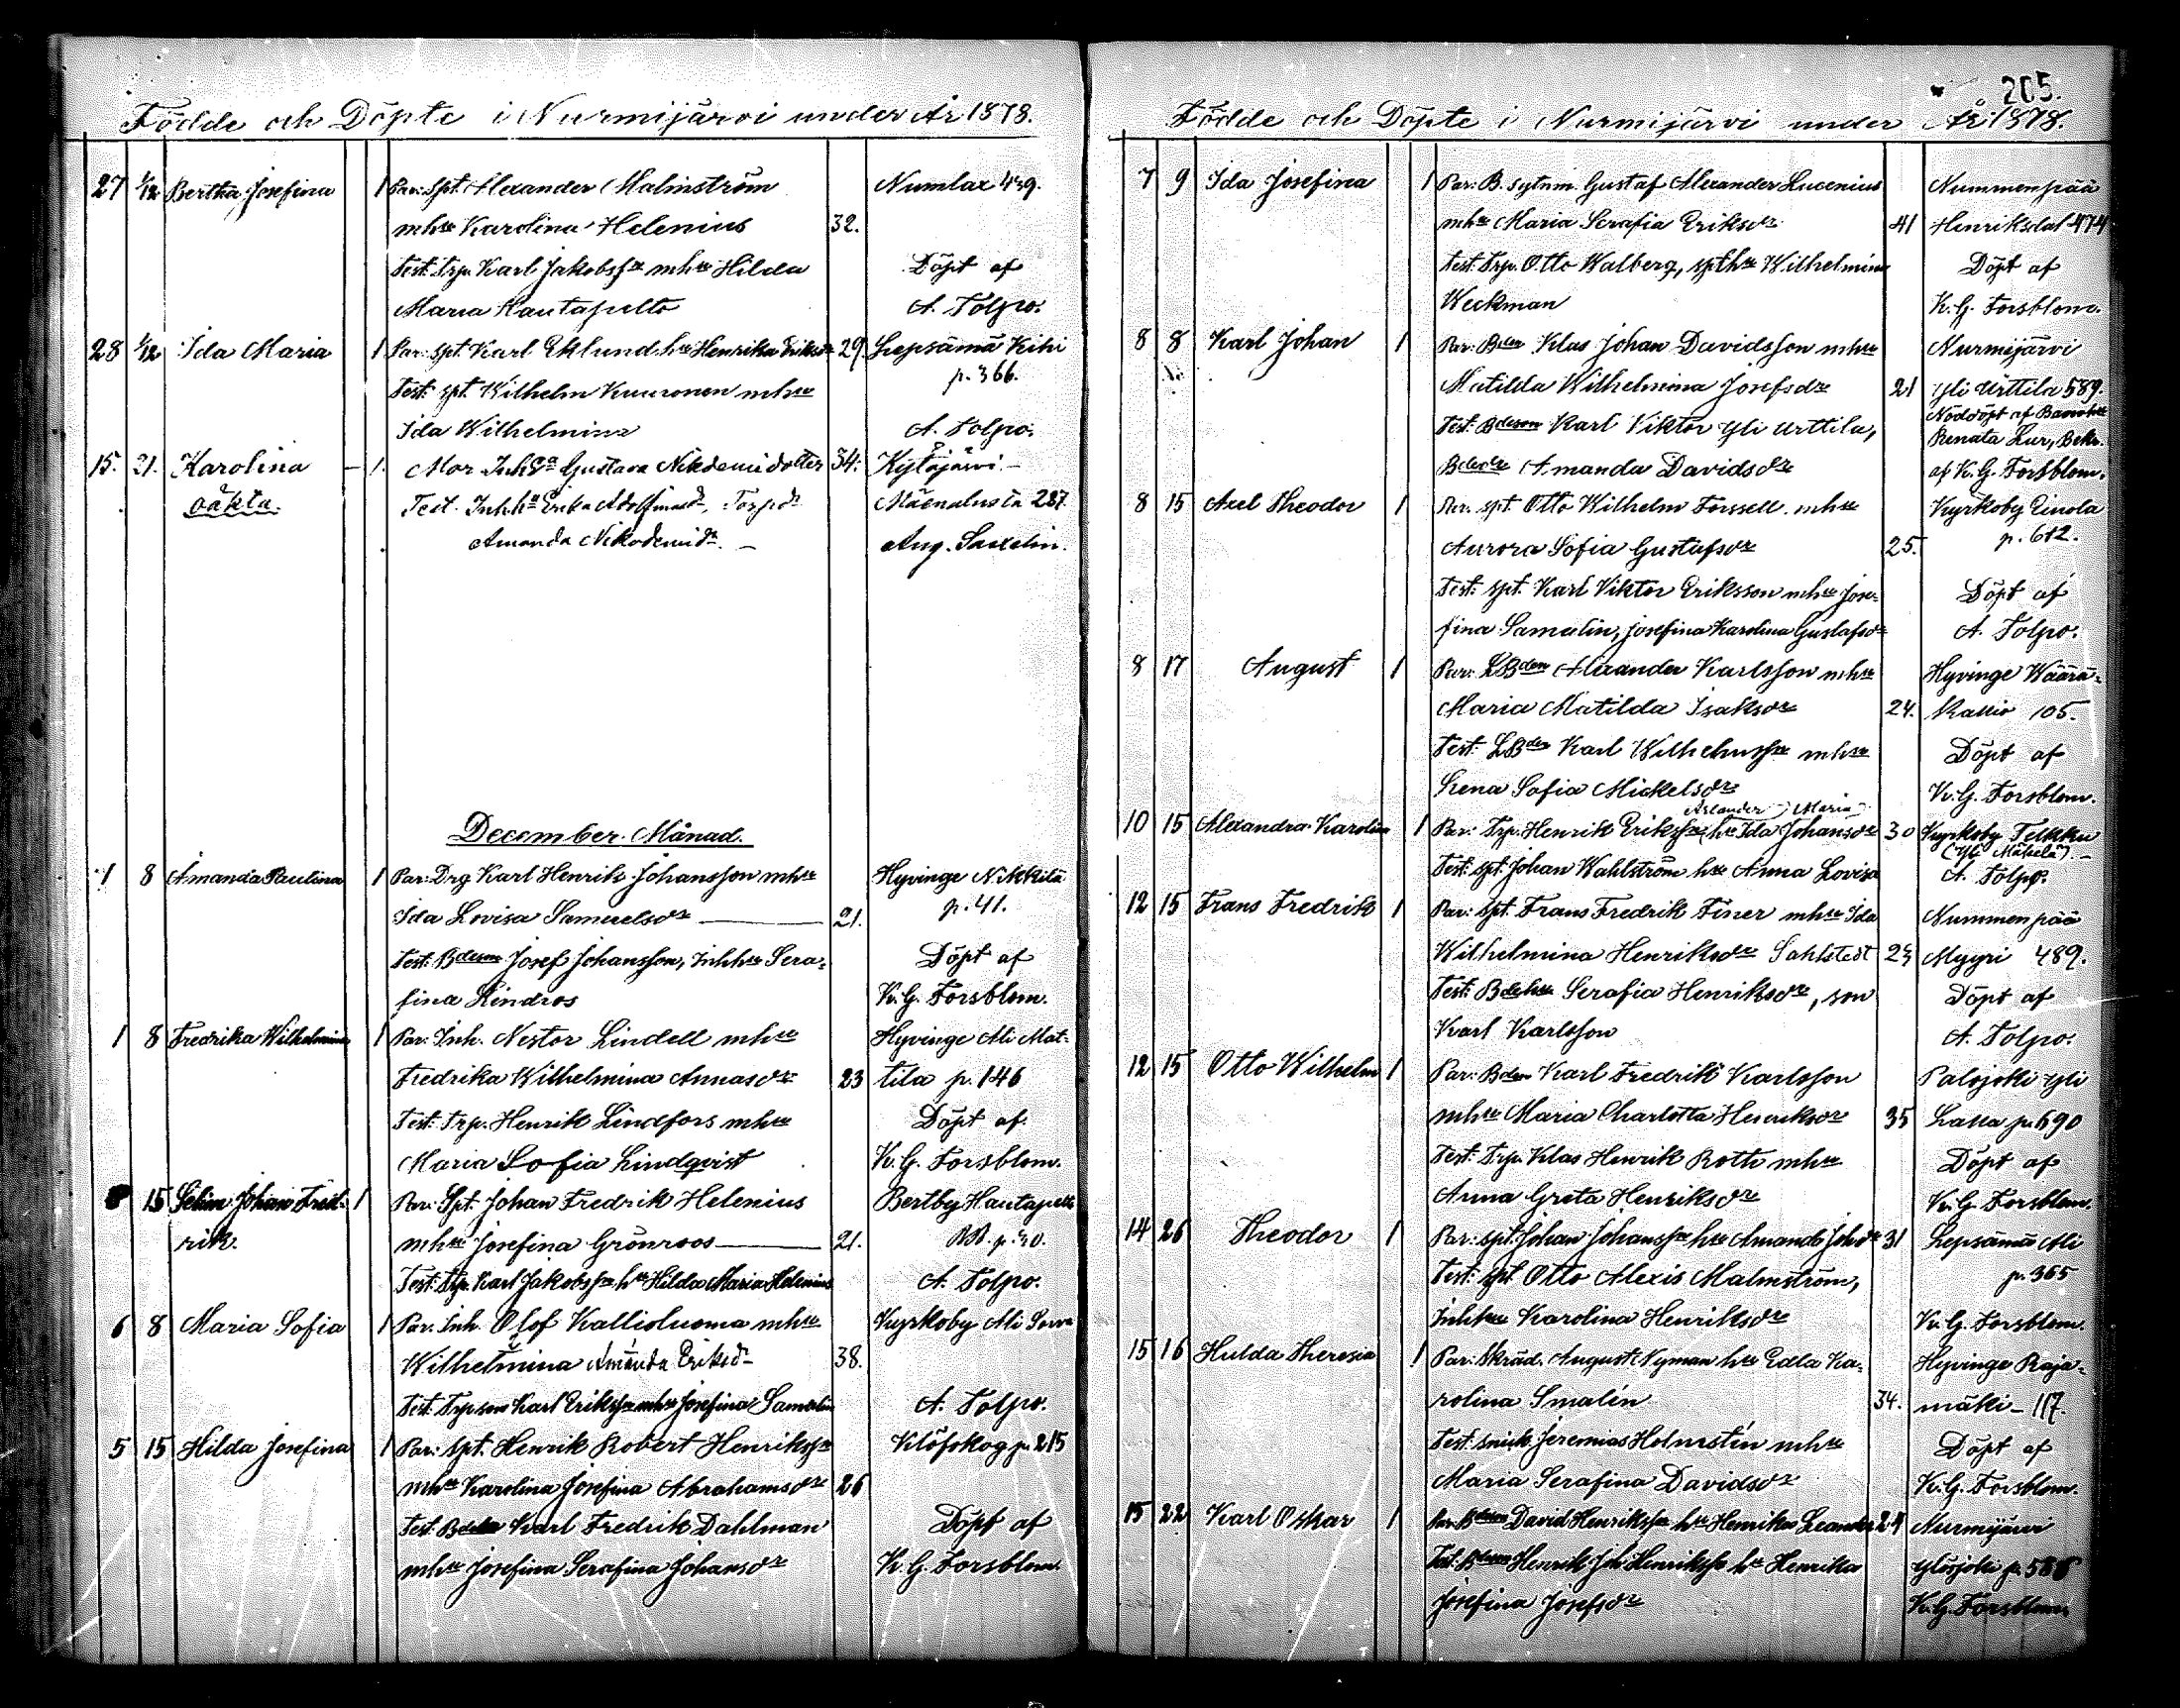 Födde och Döpte i Nurmijärvi under År 1878.
27 1/12 Bertha Josefina 1 Par: Spt. Alexander Malmström Numlax 439.
mhu Karolina Helenius 32.
Test: Trp. Karl Jakobss: mhu Hilda Döpt af
Maria Hautapelto A. Tolpo.
28 1/12 Ida Maria 1 Par: Spt. Karl Eklund hu Henrika Eriksdr 29 Lepsämä Kihi
p. 366.
Test: spt. Wilhelm Kuuronen mhu
Ida Wilhelmina A. Tolpo.
15. 21. Karolina 1. Mor Inh. Gustava Nikodemidotter 34. Kytäjärvi.
oäkta. Test. Inhha Erika Adolfina, Torpdr 287.
Amanda Nikodemidr. Aug. Saxelin.
December Månad.
1 8 Amanda Paulina 1 Par: Drg Karl Henrik Johansson mhu Hyvinge Nikkilä
Ida Lovisa Samuelsdr 21. p. 41.
Test: Bdeson Josef Johansson, Inhhu Sera- Döpt af
fina Lindros K. G. Forsblom.
1 8 Fredrika Wilhelmina 1 Par: Inh. Nestor Lindell mhu Hyvinge Ali Mat-
Fredrika Wilhelmina Annasdr 23 tila p. 146
Test: Trp. Henrik Lindfors mhu Döpt af
Maria Sofia Lindqvist K. G. Forsblom.
15 Selim Johan Fred- 1 Par: Spt. Johan Fredrik Helenius Bertby Hautapelto
rik. mhu Josefina Grönroos 21. p. 40.
Test: Trp. Karl Jakobss: hu Hilda Maria Helenius A. Tolpo.
6 8 Maria Sofia 1 Par: Inh. Olof Kallioluoma mhu Kyrkoby Ali
Wilhelmina Amanda Eriksdr 38.
Test: Trpson Karl Eriksson mhu Josefina Samelin A. Tolpo.
5 15 Hilda Josefina 1 Par: spt. Henrik Robert Henrikss: Klöfskog p. 215
mhu Karolina Josefina Abrahamsdr 26
Test: Karl Fredrik Dahlman Döpt af
mhu Josefina Serafina Johansdr K. G. Forsblom.
205.
Födde och Döpte i Nurmijärvi under År 1878.
7 9 Ida Josefina 1 Par: B. sytnm. Gustaf Alexander Lucenius Nummenpää
mhu Maria Serafia Eriksdr 41 Henriksdal 474
Test: Trp. Otto Walberg, spthu Wilhelmina Döpt af
Weckman K. G. Forsblom.
8 8 Karl Johan 1 Par: Bden Klas Johan Davidsson mhu Nurmijärvi
Matilda Wilhelmina Josefsdr 21 Yli Urttila 589.
Test: Bdeson Karl Viktor Yli Urttila, Nöddöpt af
Renata Lur, Bekr.
Bdedr Amanda Davidsdr af K. G. Forsblom.
8 15 Axel Theodor 1 Par: spt. Otto Wilhelm Forssell mhu Kyrkoby Einola
Aurora Sofia Gustafsdr 25. p. 612.
Test: spt. Karl Viktor Eriksson mhu Jose- Döpt af
fina Samelin, Josefina Karolina Gustafsdr A. Tolpo.
8 17 August 1 Par: LBden Alexander Karlsson mhu Hyvinge Wäärä-
Maria Matilda Isaksdr 24. kallio 105.
Test: LBden Karl Wilhelmss: mhu Döpt af
Lena Sofia Mickelsdr K. G. Forsblom.
Aslander Maria
10 15 Alexandra Karolina 1 Par: Trp. Henrik Erikss: hu Ida Johansdr 30 Kyrkoby Telkku
(Yli Mäkelä)
Test: spt. Johan Wahlström hu Anna Lovisa A. Tolpo.
12 15 Frans Fredrik 1 Par: spt. Frans Fredrik Finer mhu Ida Nummenpää
Wilhelmina Henriksdr Sahlstedt 23 Myyri 489.
Test: Bdehu Serafia Henriksdr, son Döpt af
Karl Karlsson A. Tolpo.
12 15 Otto Wilhelm 1 Par: Bden Karl Fredrik Karlsson Palojoki Yli
mhu Maria Charlotta Henriksdr 35 Lassa p. 690
Test: Trp. Klas Henrik Roth mhu Döpt af
Anna Greta Henriksdr K. G. Forsblom.
14 26 Theodor 1 Par: spt. Johan Johanss: hu Amanda Johdr 31 Lepsämä Ali
Test: spt. Otto Alexis Malmström, p. 365
Inhhu Karolina Henriksdr K. G. Forsblom.
15 16 Hulda Theresia 1 Par: Skräd. August Nyman hu Edla Ka- Hyvinge Raja-
rolina Smalén 34. mäki 117.
Test: snick. Jeremias Holmstén mhu Döpt af
Maria Serafina Davidsdr K. G. Forsblom.
15 22 Karl Oskar 1 Par: Bdeson David Henrikss: hu Henrika Leander 24 Nurmijärvi
Test: Bdeson Henrik Joh. Henrikss: hu Henrika p. 586
Josefina Josefsdr K. G. Forsblom.